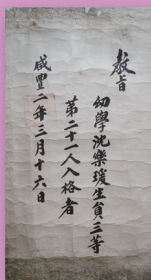 教旨
幼學沈樂瑗生員三等
第二十一人入格者
咸豐二年三月十六日